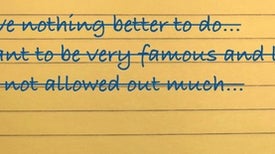 ve nothing better to do...
ant to be very famous and
not allowed out much...